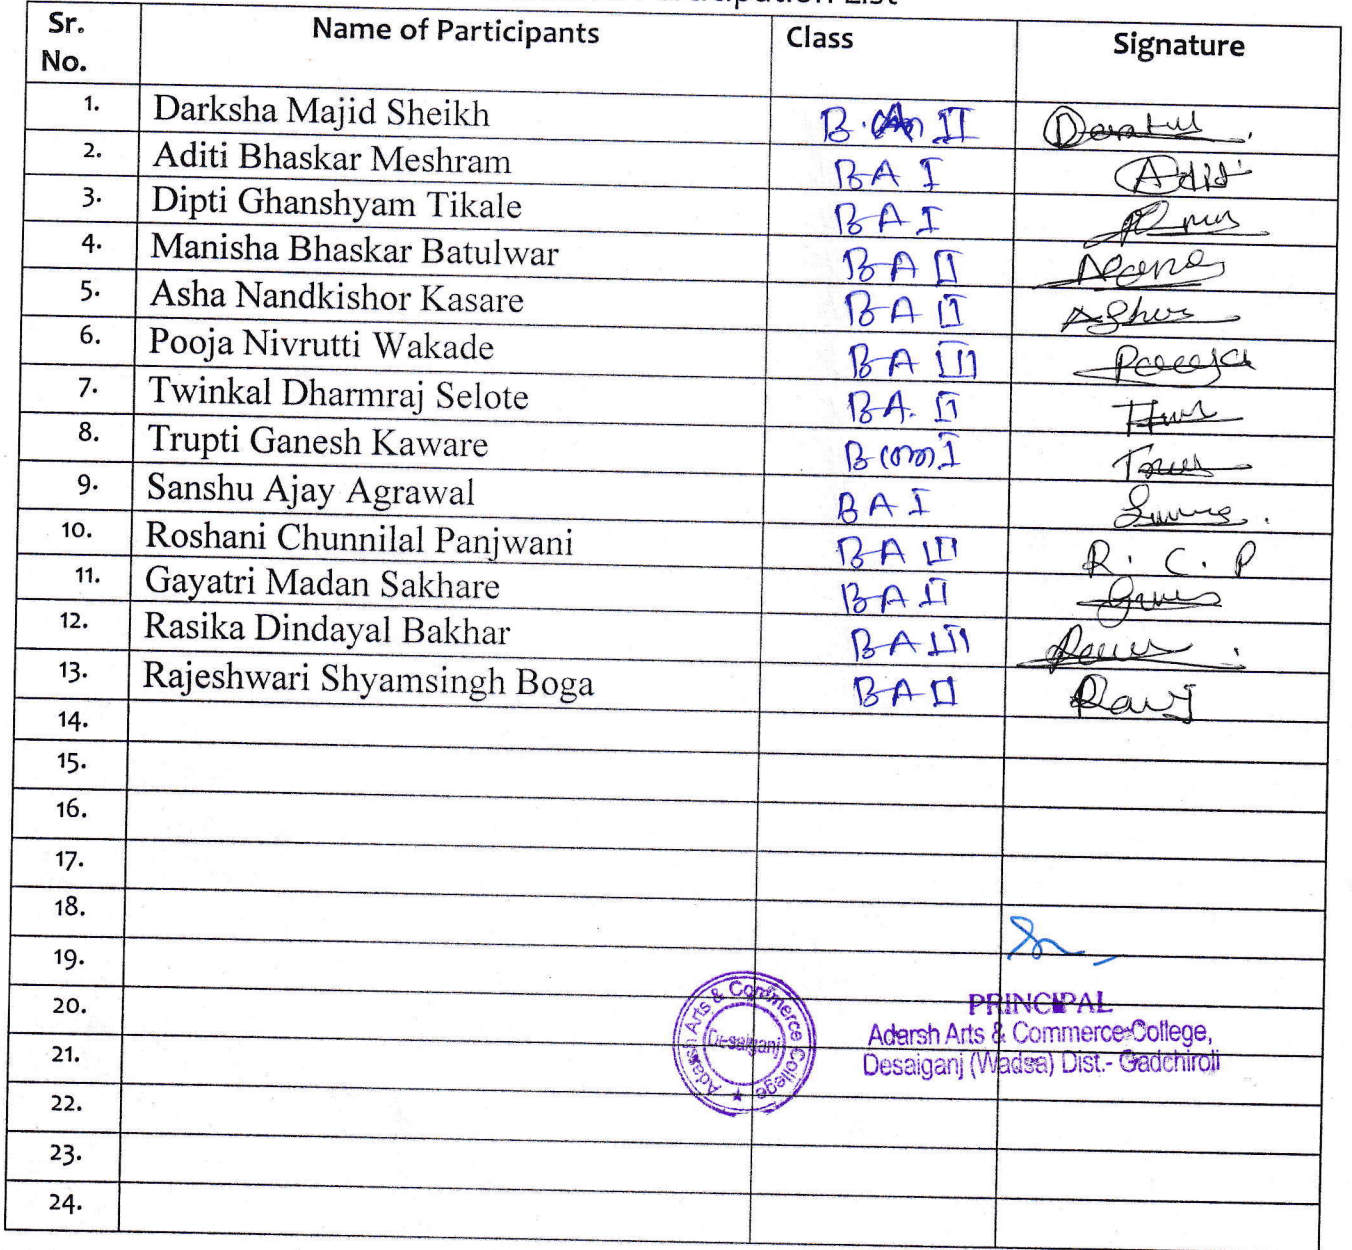 List
Sr. No. Name of Participants Class Signature
1. Darksha Majid Sheikh B. II
2. Aditi Bhaskar Meshram BA I Aditi
3. Dipti Ghanshyam Tikale BA I
4. Manisha Bhaskar Batulwar BA II
5. Asha Nandkishor Kasare BA II
6. Pooja Nivrutti Wakade BA III Pooja
7. Twinkal Dharmraj Selote BA. II
8. Trupti Ganesh Kaware B com I
9. Sanshu Ajay Agrawal BA I
10. Roshani Chunnilal Panjwani BA III R. C. P
11. Gayatri Madan Sakhare BA II
12. Rasika Dindayal Bakhar BA III
13. Rajeshwari Shyamsingh Boga BA II
14.
15.
16.
17.
18.
19.
20.
21.
22.
23.
24.
Adarsh Arts & Commerce College
Desaiganj
PRINCIPAL
Adarsh Arts & Commerce College,
Desaiganj (Wadsa) Dist.- Gadchiroli